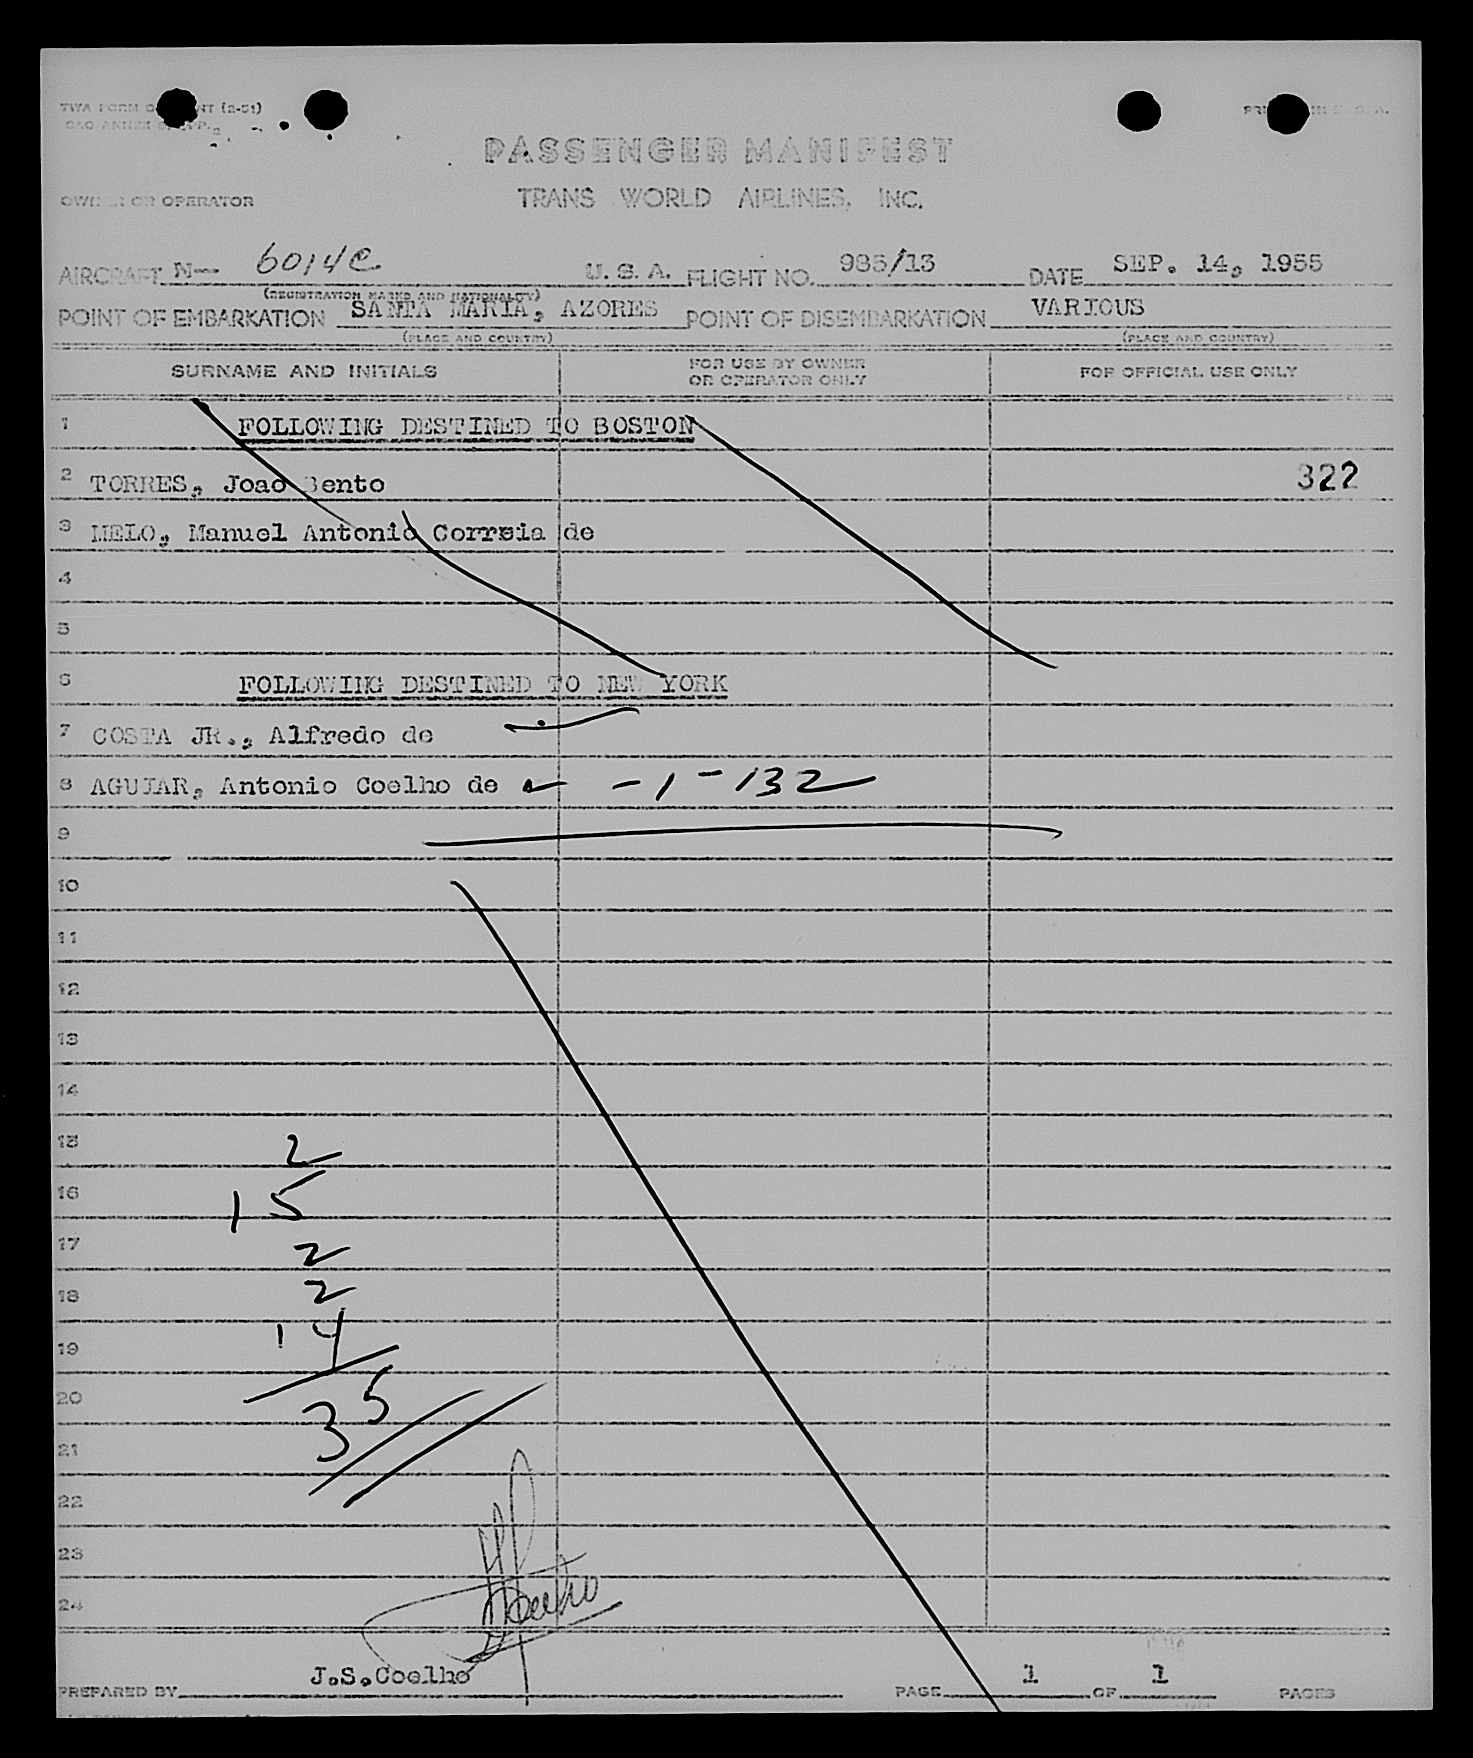 TWA FORM (2-51)
PASSENGER MANIFEST
TRANS WORLD AIRLINES, INC.
OWNER OR OPERATOR
AIRCRAFT N— 6014C U.S.A. FLIGHT NO. 985/13 DATE SEP. 14, 1955
(REGISTRATION MARKS AND NATIONALITY)
POINT OF EMBARKATION SANTA MARIA, AZORES POINT OF DISEMBARKATION VARIOUS
(PLACE AND COUNTRY) (PLACE AND COUNTRY)
SURNAME AND INITIALS FOR USE BY OWNER OR OPERATOR ONLY FOR OFFICIAL USE ONLY
1 FOLLOWING DESTINED TO BOSTON
2 TORRES, Joao Bento 322
3 MELO, Manuel Antonio Correia de
4
5
6 FOLLOWING DESTINED TO NEW YORK
7 COSTA JR., Alfredo de
8 AGUIAR, Antonio Coelho de - 1 - 132
9
10
11
12
13
14
15 2
16 15
17 2
18 2
19 14
20 35
21
22
23
24
J.S.Coelho
PREPARED BY PAGE 1 OF 1 PAGES